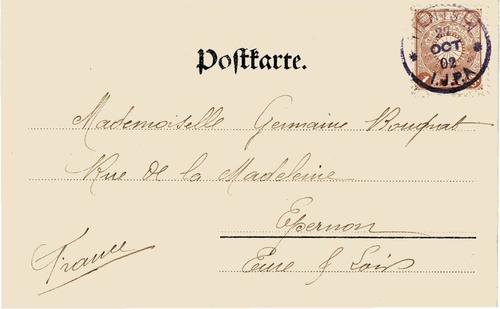 TIENTSIN
27
OCT
02
I.J.P.A
Postkarte.
Mademoiselle Germaine Bougnat
Rue de la Madeleine
Epernon
Eure & Loir
France